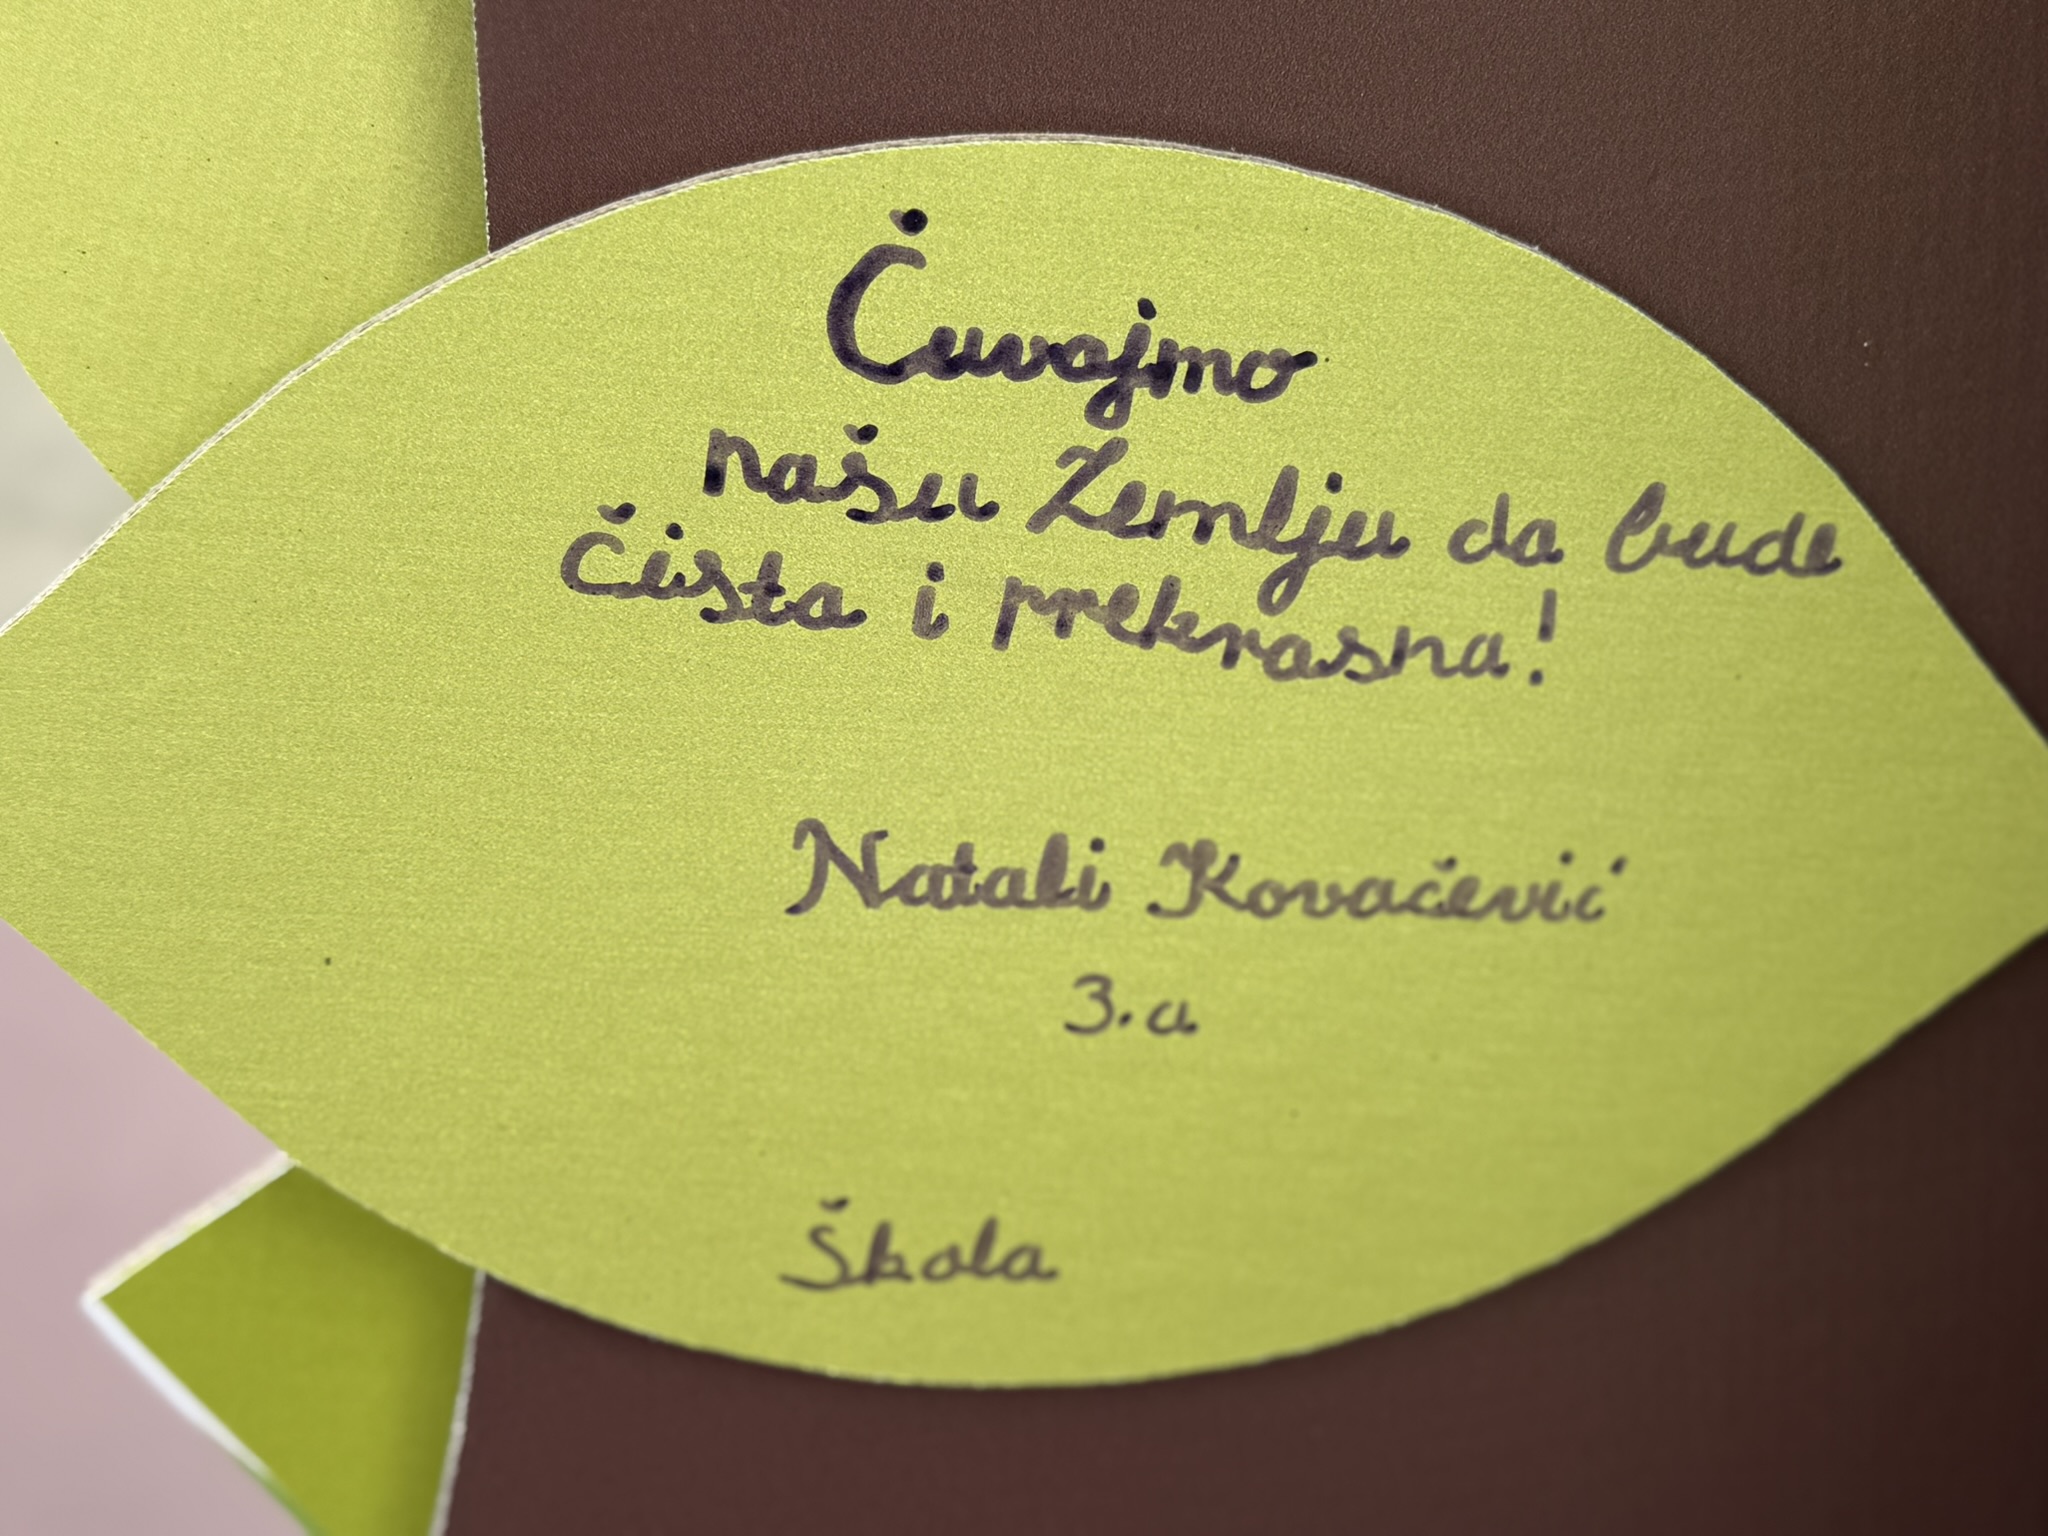 Čuvajmo
našu Zemlju da bude
čista i prekrasna!
Natali Kovačević
3.a
Škola